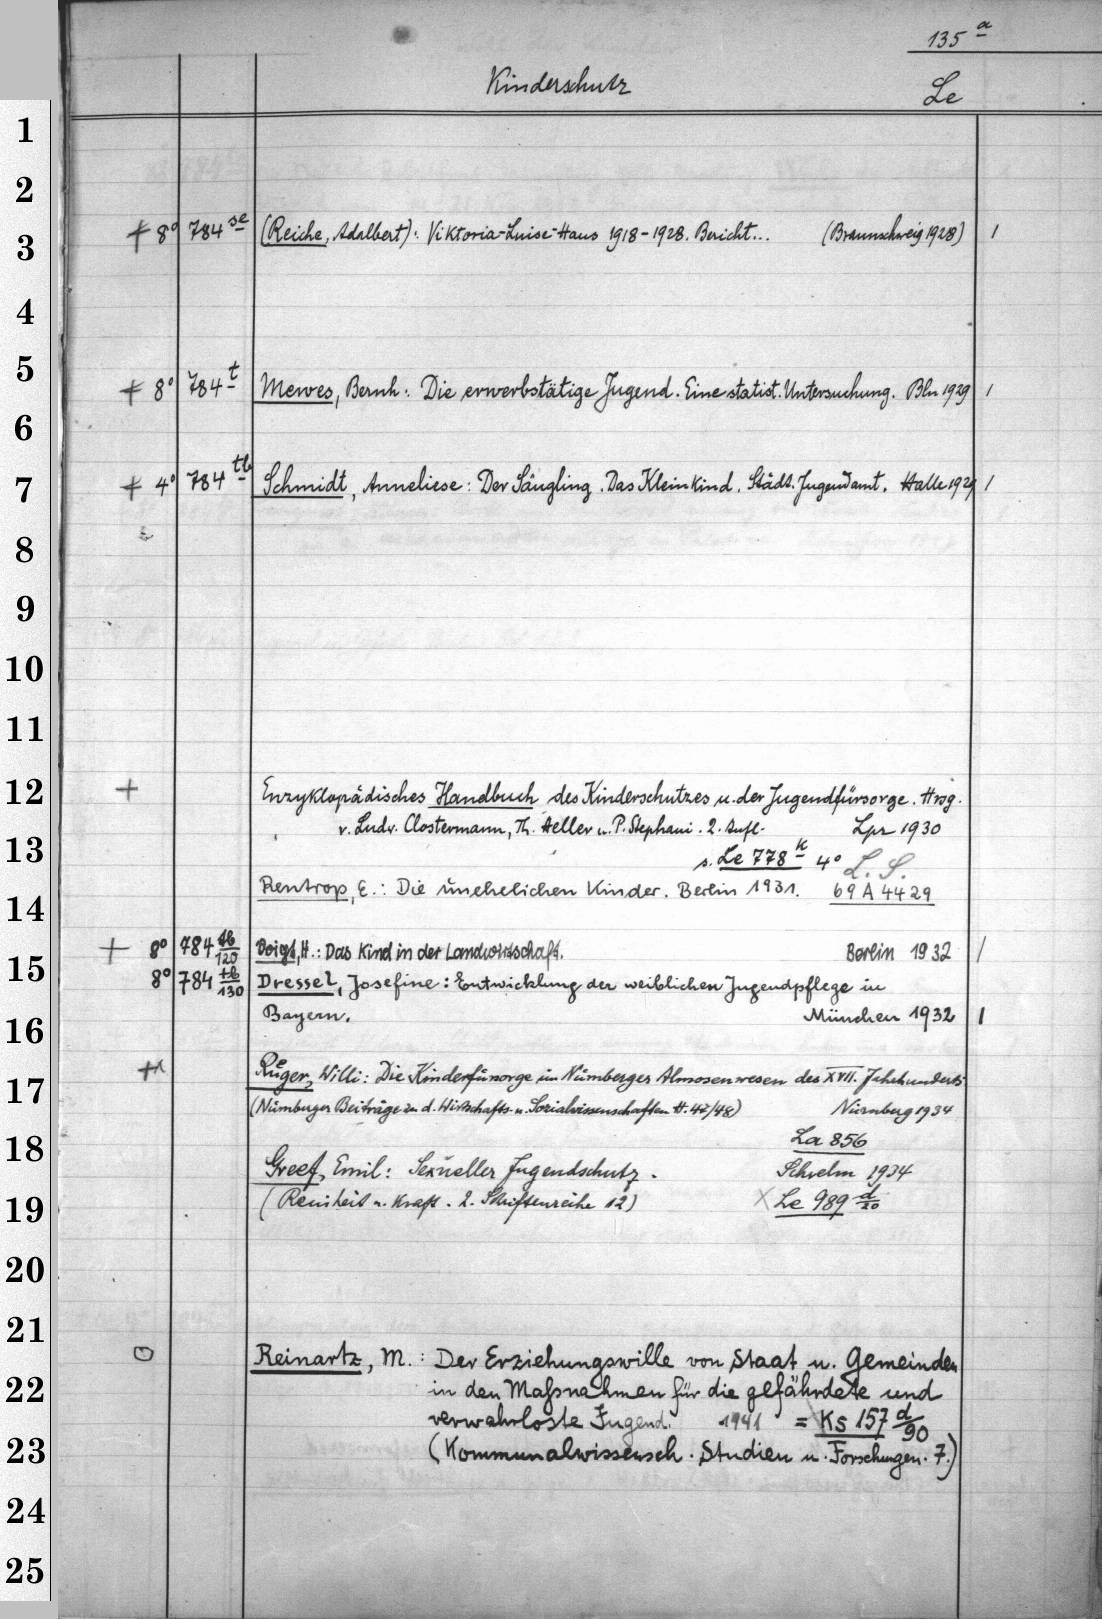 135 a
Kinderschutz Le
1
2
3 + 8° 784 se (Reiche, Adalbert): Viktoria-Luise-Haus 1918-1928. Bericht... (Braunschweig 1928) 1
4
5 + 8° 784 t Mewes, Bernh.: Die erwerbstätige Jugend. Eine statist. Untersuchung. Bln 1929 1
6
7 + 4° 784 tb Schmidt, Anneliese: Der Säugling. Das Kleinkind. Städt. Jugendamt. Halle 1929 1
8
9
10
11
12 + Enzyklopädisches Handbuch des Kinderschutzes u. der Jugendfürsorge. Hrsg.
v. Ludw. Clostermann, Th. Heller u. P. Stephani. 2. Aufl. Lpz 1930
13 s. Le 778 k 4° L. S.
Rentrop, E.: Die unehelichen Kinder. Berlin 1931. 69 A 4429
14
+ 8° 784 tb/120 Voigt, H.: Das Kind in der Landwirtschaft. Berlin 1932 /
15 8° 784 tb/130 Dressel, Josefine: Entwicklung der weiblichen Jugendpflege in
16 Bayern. München 1932 1
17 Rüger, Willi: Die Kinderfürsorge im Nürnberger Almosenwesen des XVII. Jahrhunderts
(Nürnberger Beiträge zu d. Wirtschafts- u. Sozialwissenschaften H. 47/48) Nürnberg 1934
18 La 856
Greef, Emil: Sexueller Jugendschutz. Schwelm 1934
19 (Reinheit u. Kraft. 2. Schriftenreihe 12) X Le 989 d/20
20
21
Reinartz, M.: Der Erziehungswille von Staat u. Gemeinden
22 in den Maßnahmen für die gefährdete und
verwahrloste Jugend. 1941 = Ks 157 d/90
23 (Kommunalwissensch. Studien u. Forschungen. 7.)
24
25